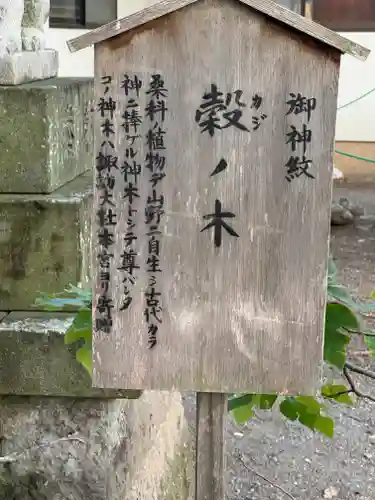 御神紋
穀ノ木
カジ
桑科植物デ山野ニ自生シ古代カラ
神ニ捧ゲル神木トシテ尊バレタ
コノ神木ハ諏訪大社本宮ヨリ寄贈